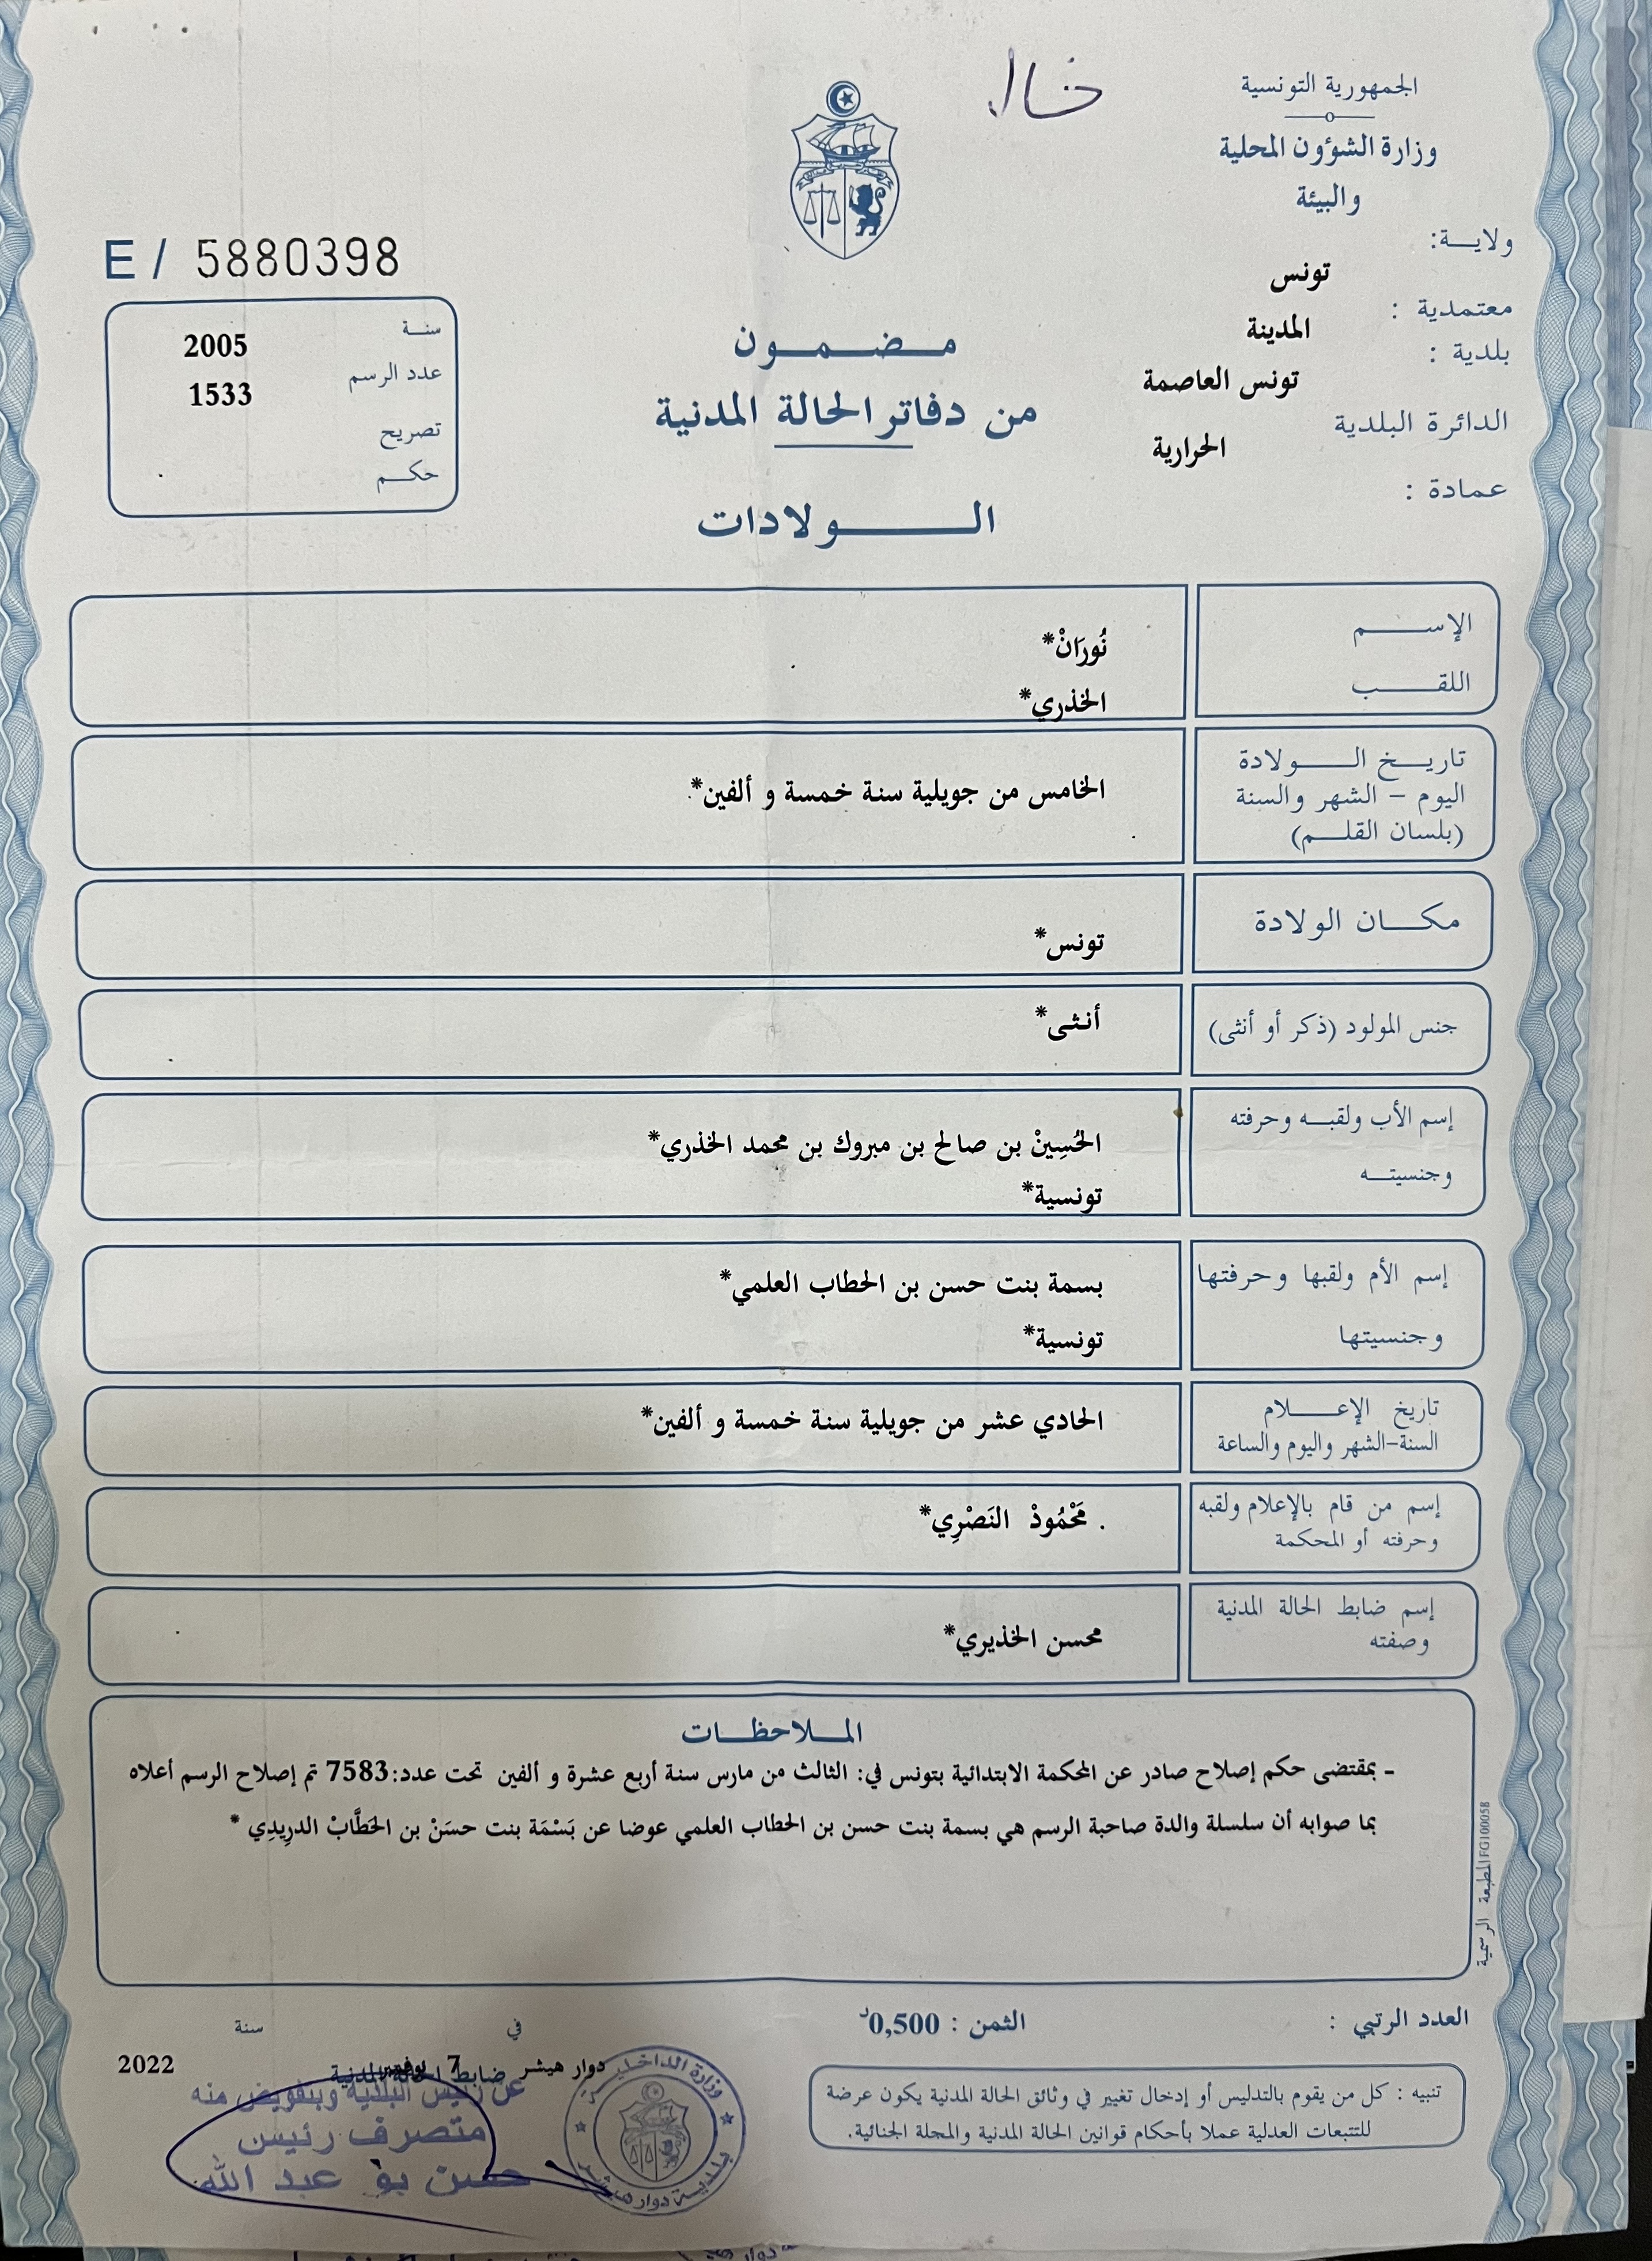 خال
الجمهورية التونسية
وزارة الشؤون المحلية
والبيئة
ولايـة:
تونس
معتمدية :
المدينة
بلدية :
تونس العاصمة
الدائرة البلدية
الحرارية
عمادة :
E / 5880398
سنـة
2005
عدد الرسم
1533
تصريح
حكـم
مـضـمـون
من دفاتر الحالة المدنية
الـولادات
الإسـم
نُورَانْ*
اللقـب
الخذري*
تاريـخ الـولادة
اليوم – الشهر والسنة
(بلسان القلـم)
الخامس من جويلية سنة خمسة و ألفين*
مكـان الولادة
تونس*
جنس المولود (ذكر أو أنثى)
أنثى*
إسم الأب ولقبـه وحرفته
وجنسيتـه
الحُسِينْ بن صالح بن مبروك بن محمد الخذري*
تونسية*
إسم الأم ولقبها وحرفتها
وجنسيتها
بسمة بنت حسن بن الحطاب العلمي*
تونسية*
تاريخ الإعـلام
السنة-الشهر واليوم والساعة
الحادي عشر من جويلية سنة خمسة و ألفين*
إسم من قام بالإعلام ولقبه
وحرفته أو المحكمة
. مَحْمُودْ النَصْرِي*
إسم ضابط الحالة المدنية
وصفته
محسن الخذيري*
الملاحظـات
- بمقتضى حكم إصلاح صادر عن المحكمة الابتدائية بتونس في: الثالث من مارس سنة أربع عشرة و ألفين تحت عدد:7583 تم إصلاح الرسم أعلاه
بما صوابه أن سلسلة والدة صاحبة الرسم هي بسمة بنت حسن بن الحطاب العلمي عوضا عن بَسْمَة بنت حسَنْ بن الحَطَّابْ الدرِيدِي *
المطبعة الرسمية FG100058
العدد الرتبي :
الثمن : 0,500د
في
سنة
دوار هيشر 7 نوفمبر
2022
ضابط الحالة المدنية
عن رئيس البلدية وبتفويض منه
متصرف رئيس
حسن بو عبد الله
وزارة الداخلية
بلدية دوار هيشر
تنبيه : كل من يقوم بالتدليس أو إدخال تغيير في وثائق الحالة المدنية يكون عرضة
للتتبعات العدلية عملا بأحكام قوانين الحالة المدنية والمجلة الجنائية.